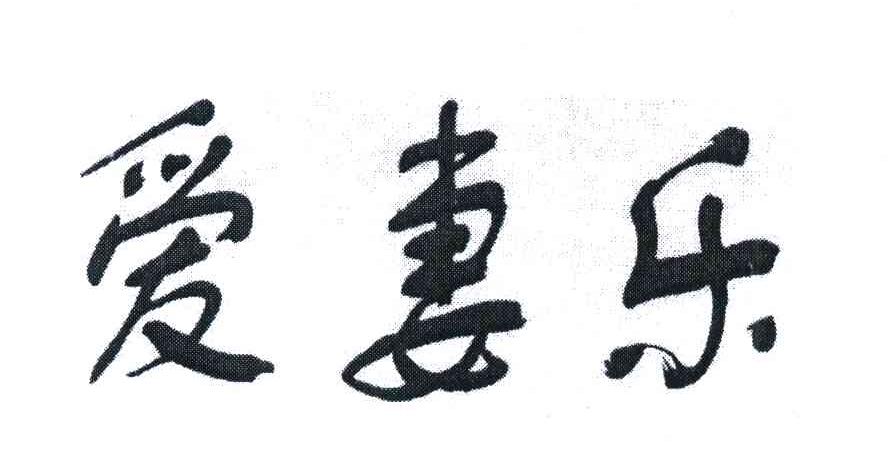 爱妻乐